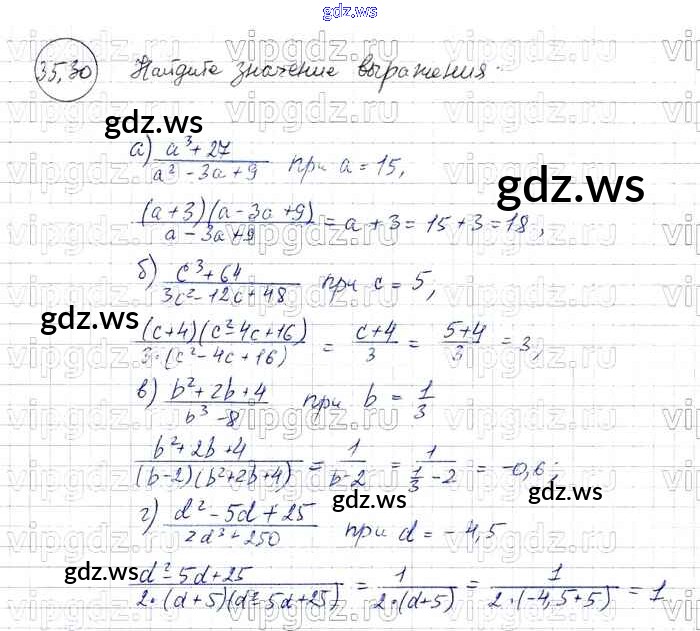 gdz.ws
35,30 Найдите значение выражения.
gdz.ws
а) (a³ + 27)/(a² - 3a + 9) при a = 15,
gdz.ws
((a + 3)(a - 3a + 9))/(a - 3a + 9) = a + 3 = 15 + 3 = 18,
б) (c³ + 64)/(3c² - 12c + 48) при c = 5,
gdz.ws
((c + 4)(c² - 4c + 16))/(3·(c² - 4c + 16)) = (c + 4)/3 = (5 + 4)/3 = 3,
в) (b² + 2b + 4)/(b³ - 8) при b = 1/3
(b² + 2b + 4)/((b - 2)(b² + 2b + 4)) = 1/(b - 2) = 1/(1/3 - 2) = -0,6;
gdz.ws
gdz.ws
г) (d² - 5d + 25)/(2d³ + 250) при d = -4,5
gdz.ws
(d² - 5d + 25)/(2·(d + 5)(d² - 5d + 25)) = 1/(2·(d + 5)) = 1/(2·(-4,5 + 5)) = 1
vipgdz.ru